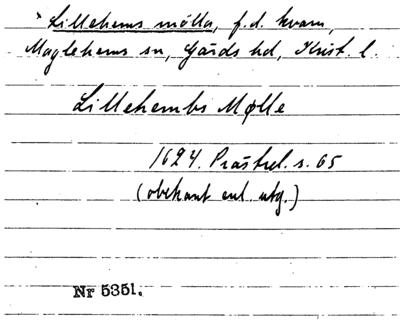 Lillehems mölla, f.d. kvarn,
Maglehems sn, Gärds hd, Krist. l.
Lillehembs Mølle
1624. Prästrel. s. 65
(obekant enl. utg.)
Nr 5351.